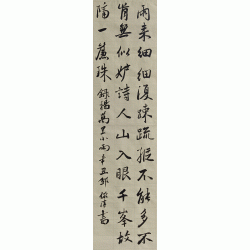 雨来細細復疎疏縱不能多不
肯無似妒詩人山入眼千峯故
隔一簾珠 録楊萬里小雨辛丑 書